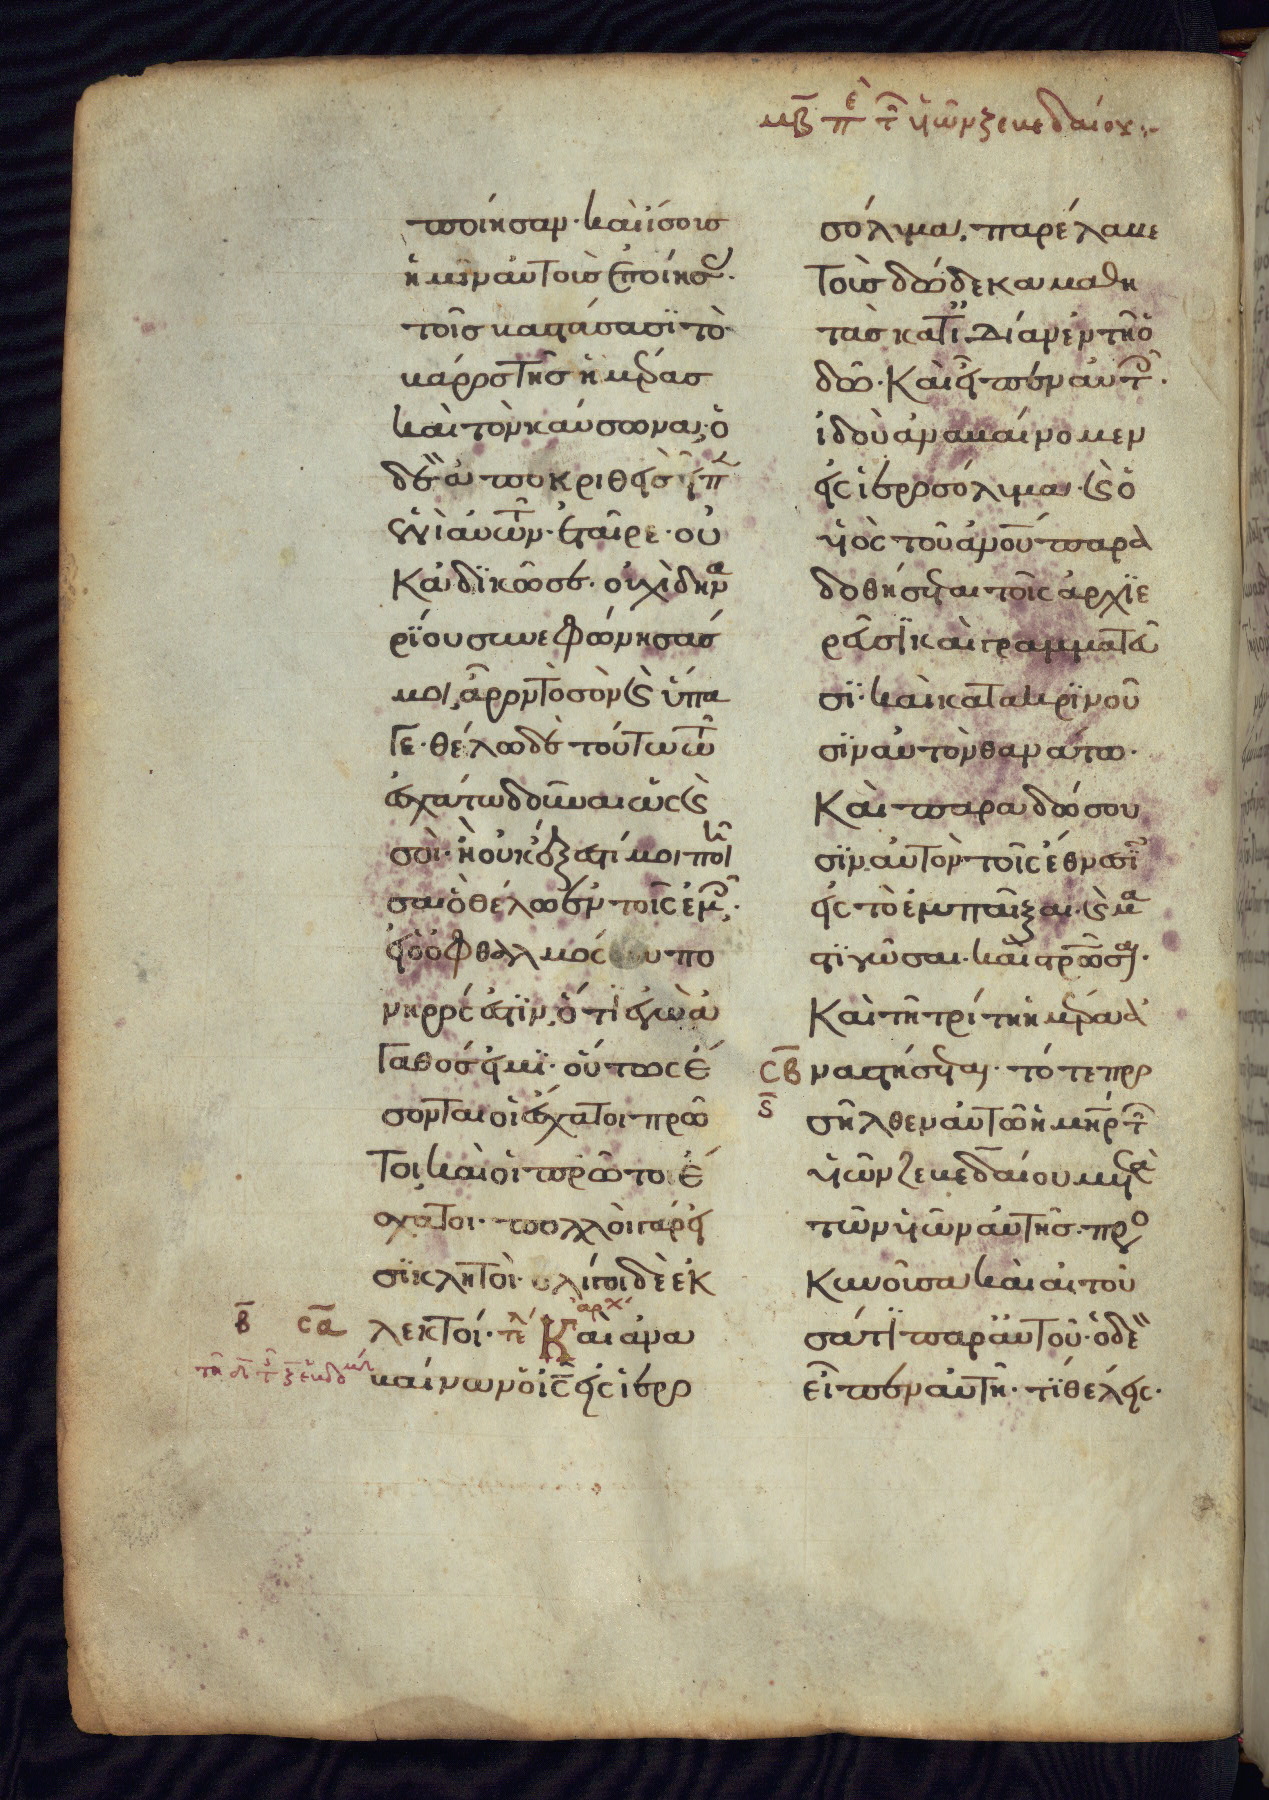 μβ πε τ ὑιῶν ζεβεδαίου:-
ποίησαν· καὶ ἴσους
ἡμῖν αὐτοὺς ἐποίησ·
τοῖς βαστάσασϊ τὸ
βάρος τῆς ἡμέρας
καὶ τὸν καύσωνα, ὁ
δὲ ἀποκριθεὶς εἶπ
ἑνὶ αὐτῶν· ἑταῖρε· οὐ
κ ἀδϊκῶ σε· οὐχὶ δηνα
ρϊου συνεφώνησάς
μοι, ἆρον τὸ σὸν καὶ ὕπα
γε· θέλω δὲ τούτω τῶ
ἐσχάτω δοῦναι ὡς καὶ
σοὶ· ἢ οὐκ ἔξεστί μοι ποιῆ
σαι ὃ θέλω ἐν τοῖς ἐμοῖς·
εἰ ὁ ὀφθαλμός σου πο
νηρός ἐστϊν, ὅτι ἐγὼ ἀ
γαθός εἰμϊ· οὕτως ἔ
σονται οἱ ἔσχατοι πρῶ
τοι καὶ οἱ πρῶτοι ἔ
σχατοι· πολλοὶ γάρ εἰ
σϊ κλητοὶ· ὀλίγοι δὲ ἐκ
β σα λεκτοί· τελ αρχ Καὶ ἀνα
βαίνων ὁ ις εἰς ἱερο
σόλυμα, παρέλαβε
τοὺς δώδεκα μαθη
τὰς κατ ἰδίαν ἐν τῆ ὁ
δῶ· Καὶ εἶπεν αὐτοῖς·
ἰδοὺ ἀναβαίνομεν
εἰς ἱεροσόλυμα· καὶ ὁ
ὑιὸς τοῦ ἀνου παρα
δοθήσεται τοῖς ἀρχϊε
ρεῦσϊ καὶ γραμματεῦ
σϊ· καὶ κατακρϊνοῦ
σϊν αὐτὸν θανάτω·
Καὶ παραδώσου
σϊν αὐτὸν τοῖς ἔθνεσϊ
εἰς τὸ ἐμπαῖξαι· καὶ μα
στϊγῶσαι· καὶ στρῶσαι·
Καὶ τῆ τρίτη ἡμέρα ἀ
σβ ναστήσεται· τότε προ
ϛ σῆλθεν αὐτῶ ἡ μηρ τ
ὑιῶν ζεβεδαίου μετὰ
τῶν ὑιῶν αὐτῆς· προσ
κυνοῦσα καὶ αἰτοῦ
σά τϊ παρ αὐτοῦ· ὁ δὲ
εἶπεν αὐτῆ· τϊ θέλεις·